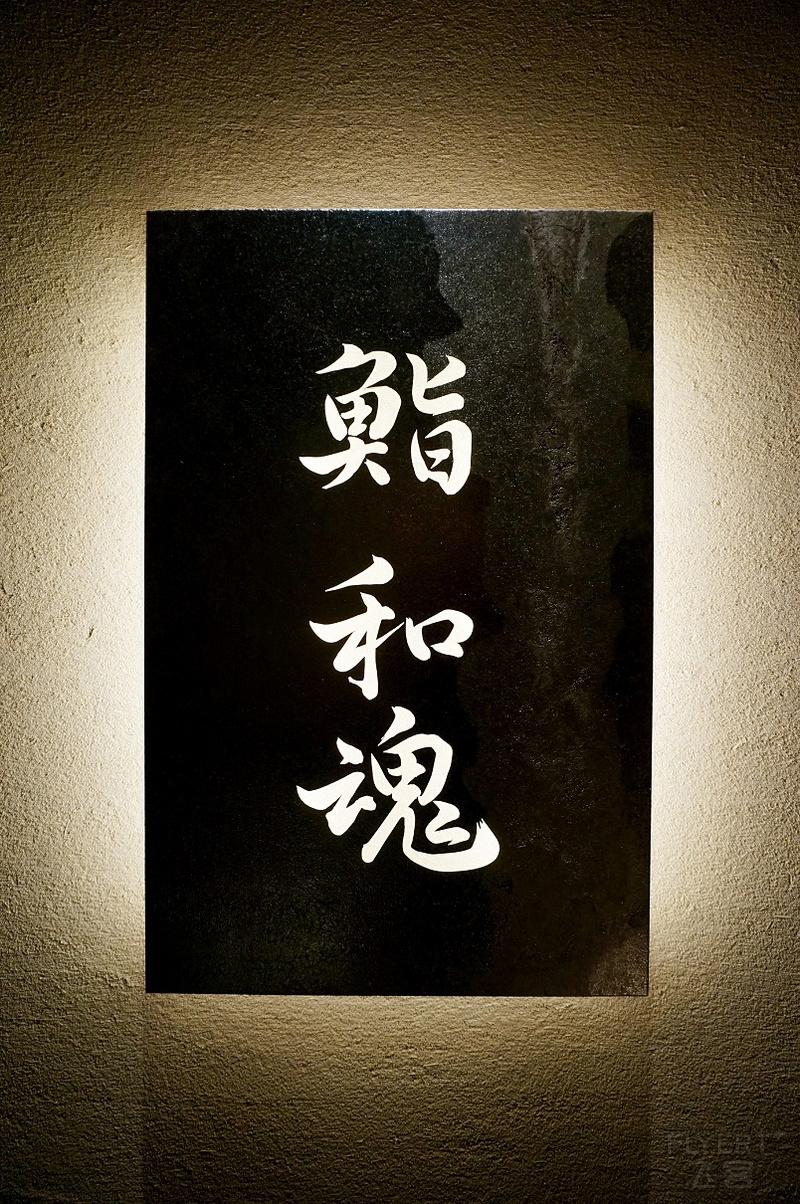 鮨 和魂
FLYERT
飞客